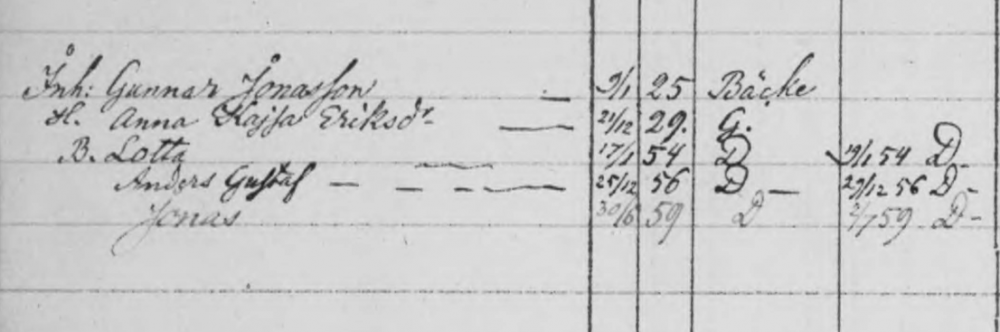 Inh: Gunnar Jonasson — 9/1 25 Bäcke
H. Anna Kajsa Eriksdr — 21/12 29. G.
B. Lotta — 17/1 54 D 19/1 54 D-
Anders Gustaf — — — — 25/12 56 D — 29/12 56 D-
Jonas 30/6 59 D 3/7 59 D-